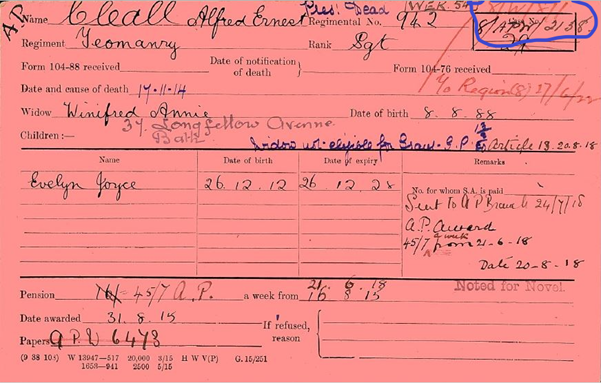 A.P. Name Cleall Alfred Ernest Pres: Dead Regimental No. 942
8/APW/2158
Regiment Yeomanry Rank Sgt
Form 104-88 received Date of notification of death Form 104-76 received
Date and cause of death 17.11.14 To Region (8) 27/6/22
Widow Winifred Annie Date of birth 8.8.88
37 Longfellow Avenue
Bath
Children:— Widow not eligible for Grant - A.P. Article 13. 20.8.18
Name Date of birth Date of expiry Remarks
Evelyn Joyce 26.12.12 26 12.28
No. for whom S.A. is paid
Sent to A P Branch 24/7/18
A.P. Award
45/7 a week from 21-6-18
Date 20-8-18
Noted for Novel.
21. 6. 18
Pension 16/- 45/7 A.P. a week from 16 8 15
Date awarded 31. 8. 15
If refused, reason
Papers A P W 6473
(9 38 103) W 13947—517 20,000 3/15 H W V(P) G.15/251
1653—941 2500 5/15